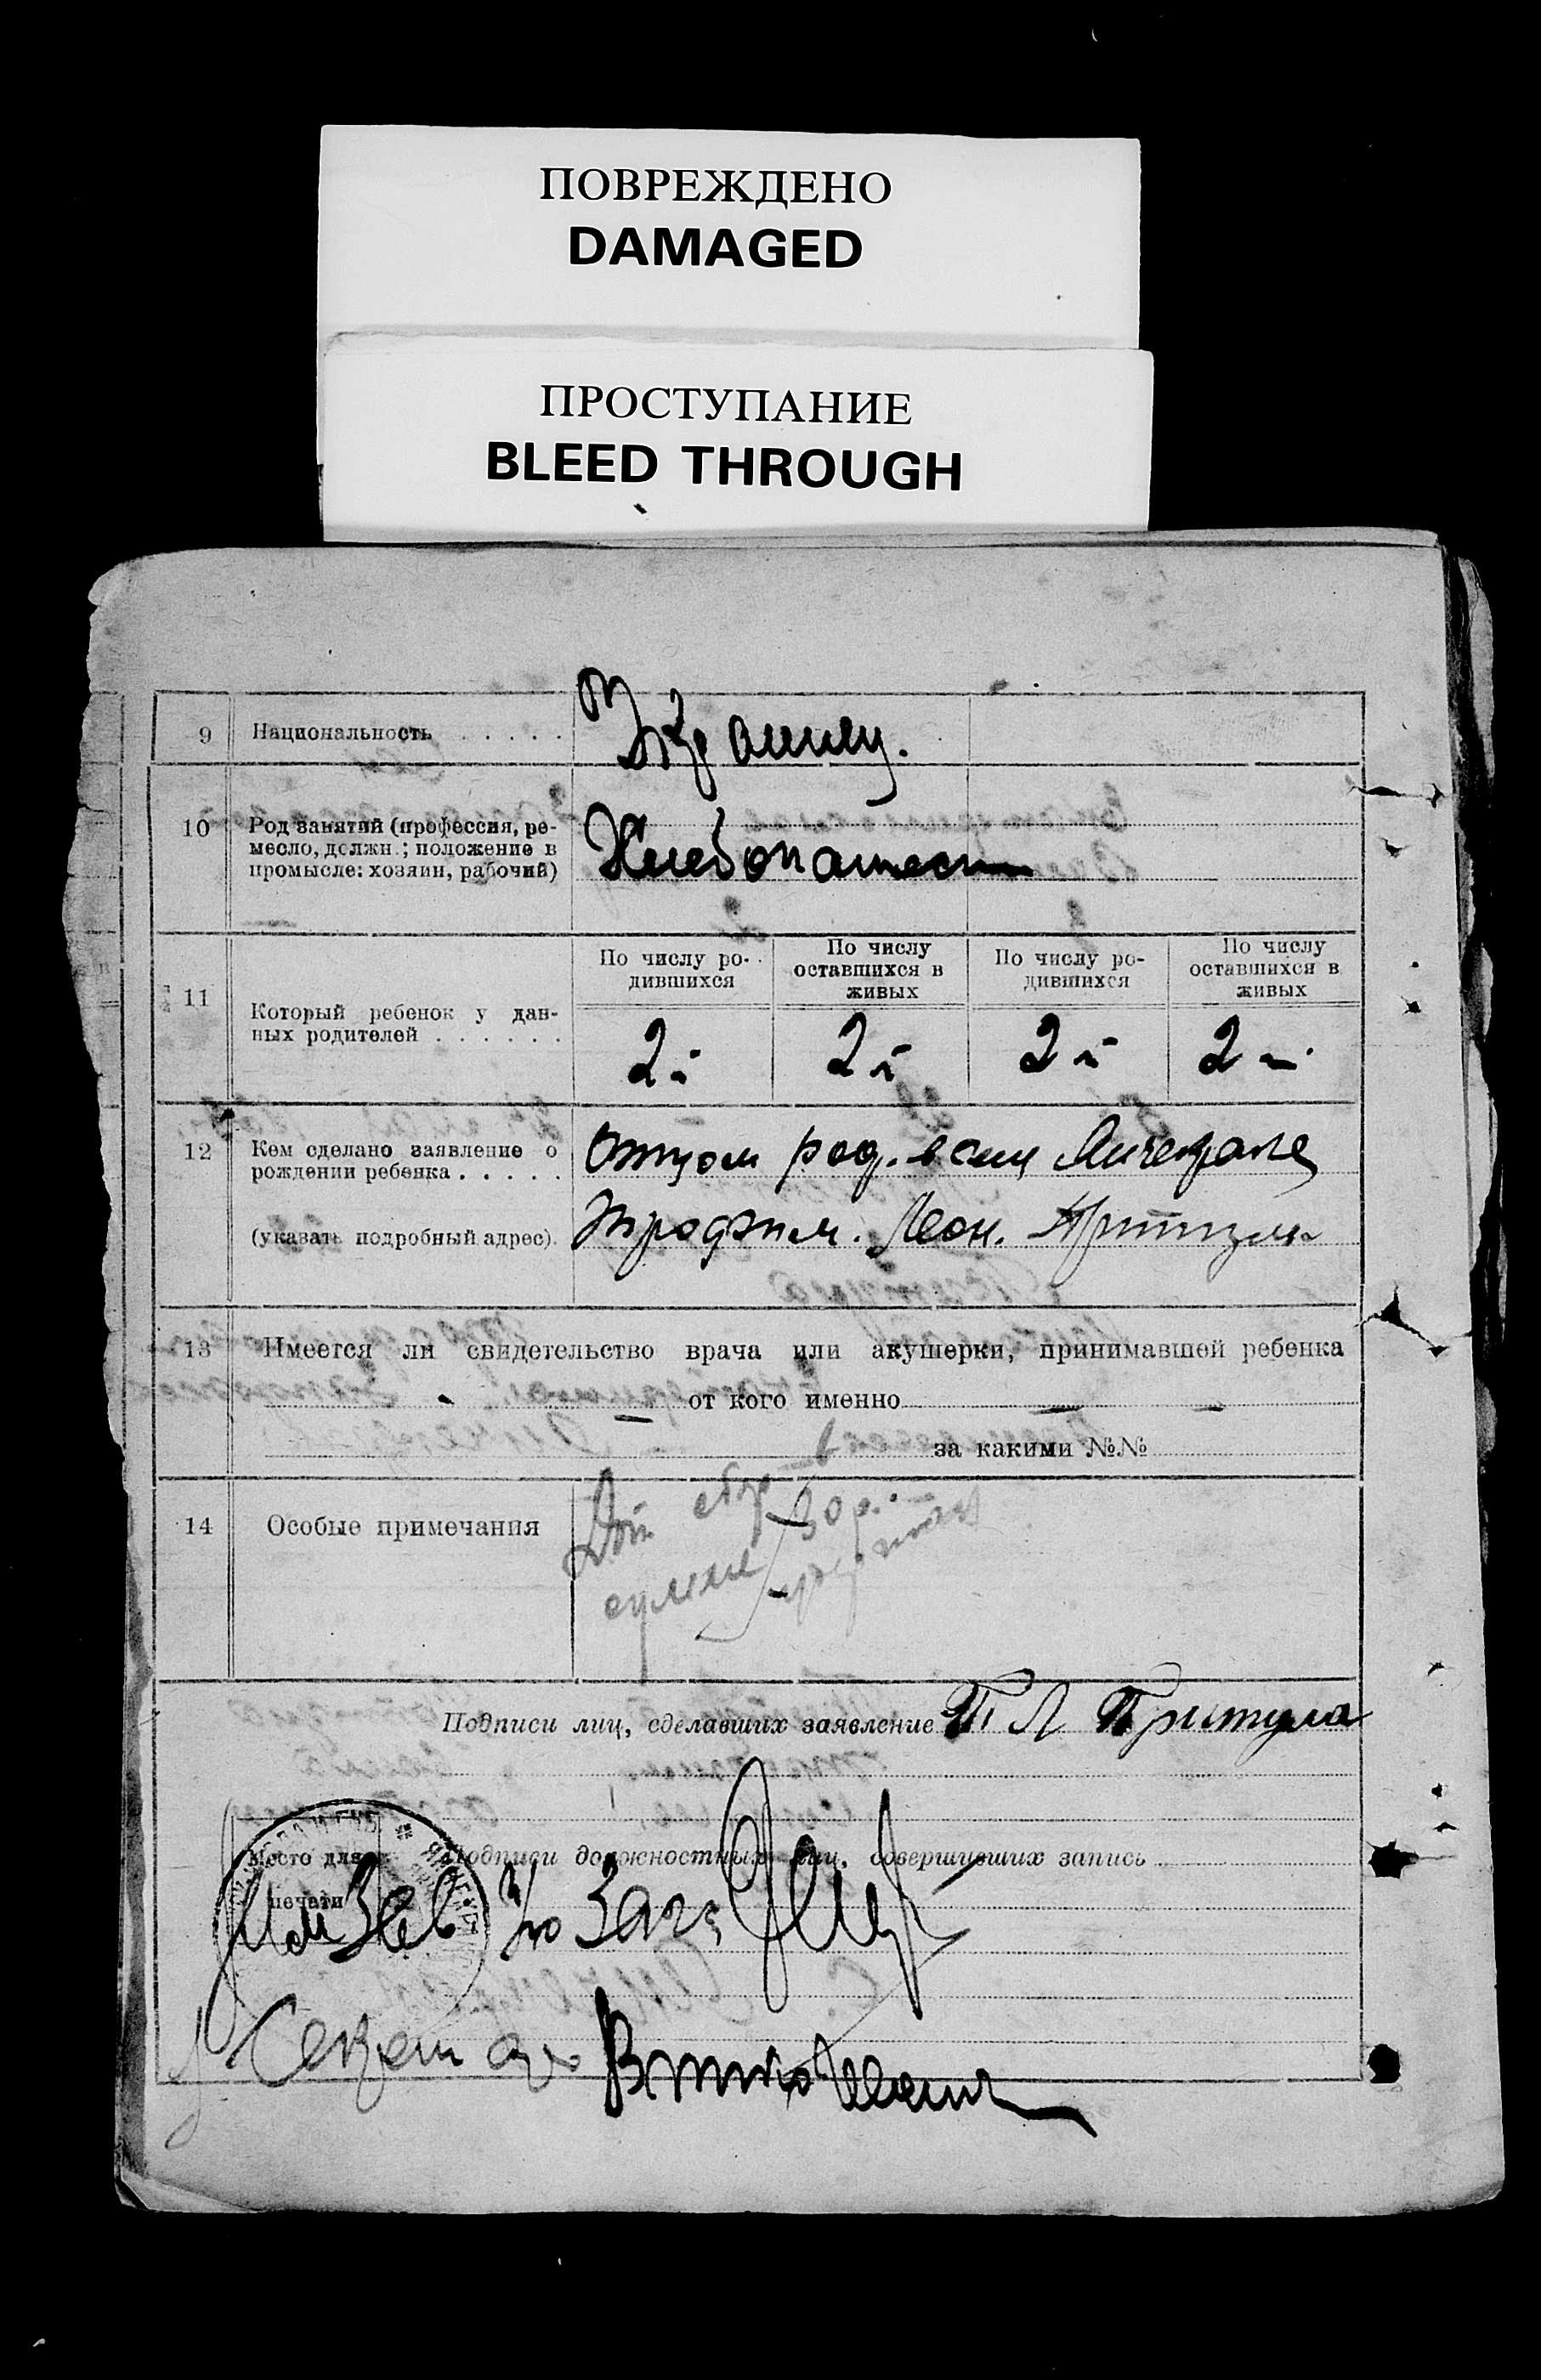 ПОВРЕЖДЕНО
DAMAGED
ПРОСТУПАНИЕ
BLEED THROUGH
9 Национальность . . . . .
10 Род занятий (профессия, ре-
месло, должн.; положение в
промысле: хозяин, рабочий)
Хлебопашест
11 Который ребенок у дан-
ных родителей . . . . . .
По числу ро-
дившихся
По числу
оставшихся в
живых
По числу ро-
дившихся
По числу
оставшихся в
живых
2й 2й 2й 2-
12 Кем сделано заявление о
рождении ребенка . . . . .
(указать подробный адрес).
Отцом род. в селу
Трофим. Леон. Притула
13 Имеется ли свидетельство врача или акушерки, принимавшей ребенка
от кого именно
за какими №№
14 Особые примечания
Подписи лиц, сделавших заявление Т Л Притула
Место для
печати
Подписи должностных лиц, совершивших запись
Зав Загс